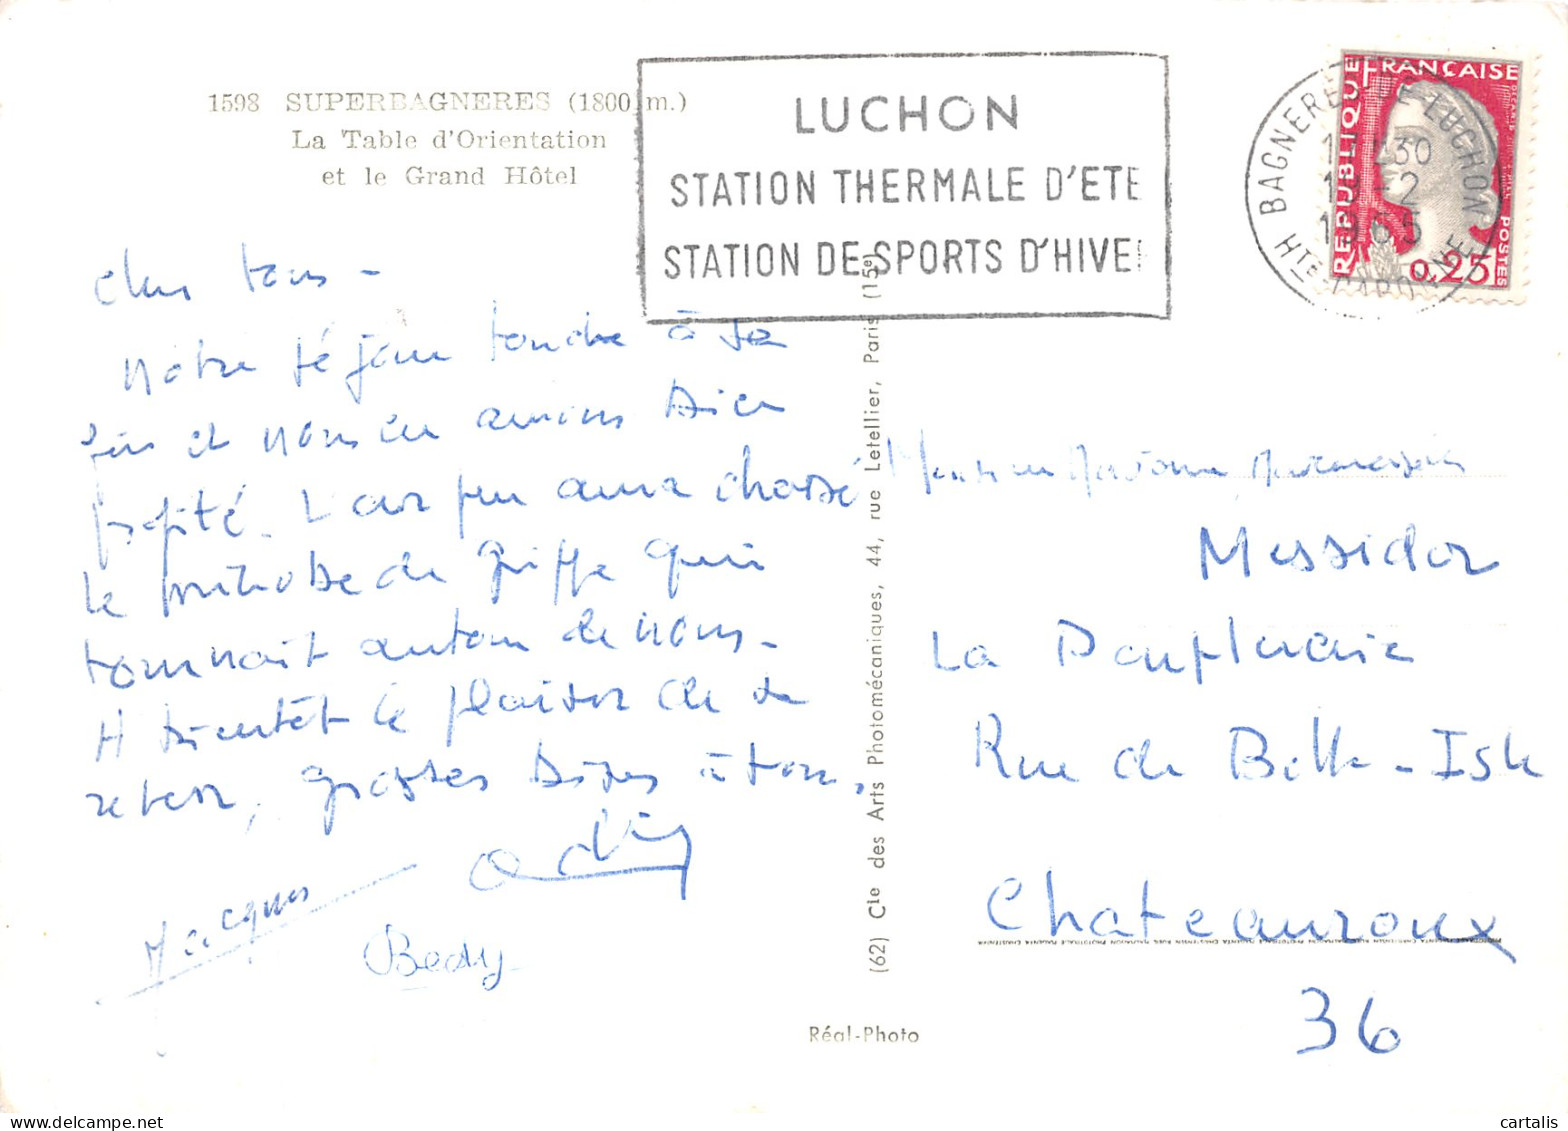 1598 SUPERBAGNERES (1800 m.)
La Table d'Orientation
et le Grand Hôtel
LUCHON
STATION THERMALE D'ETE
STATION DE SPORTS D'HIVE
BAGNERES DE LUCHON
30
19-2
1965
HTE GARONNE
REPUBLIQUE FRANÇAISE
POSTES
0,25
Chers tous -
Notre séjour touche à sa
fin et nous en avons bien
profité. L'air pur aura chassé
le microbe de grippe qui
tournait autour de nous -
A bientôt le plaisir de se
revoir, grosses bises à tous.
Jacques
Cie des Arts Photomécaniques, 44, rue Letellier, Paris (15e)
(62)
Réal-Photo
Monsieur Madame
Messidor
La
Rue de Belle-Isle
Chateauroux
36
cartalis